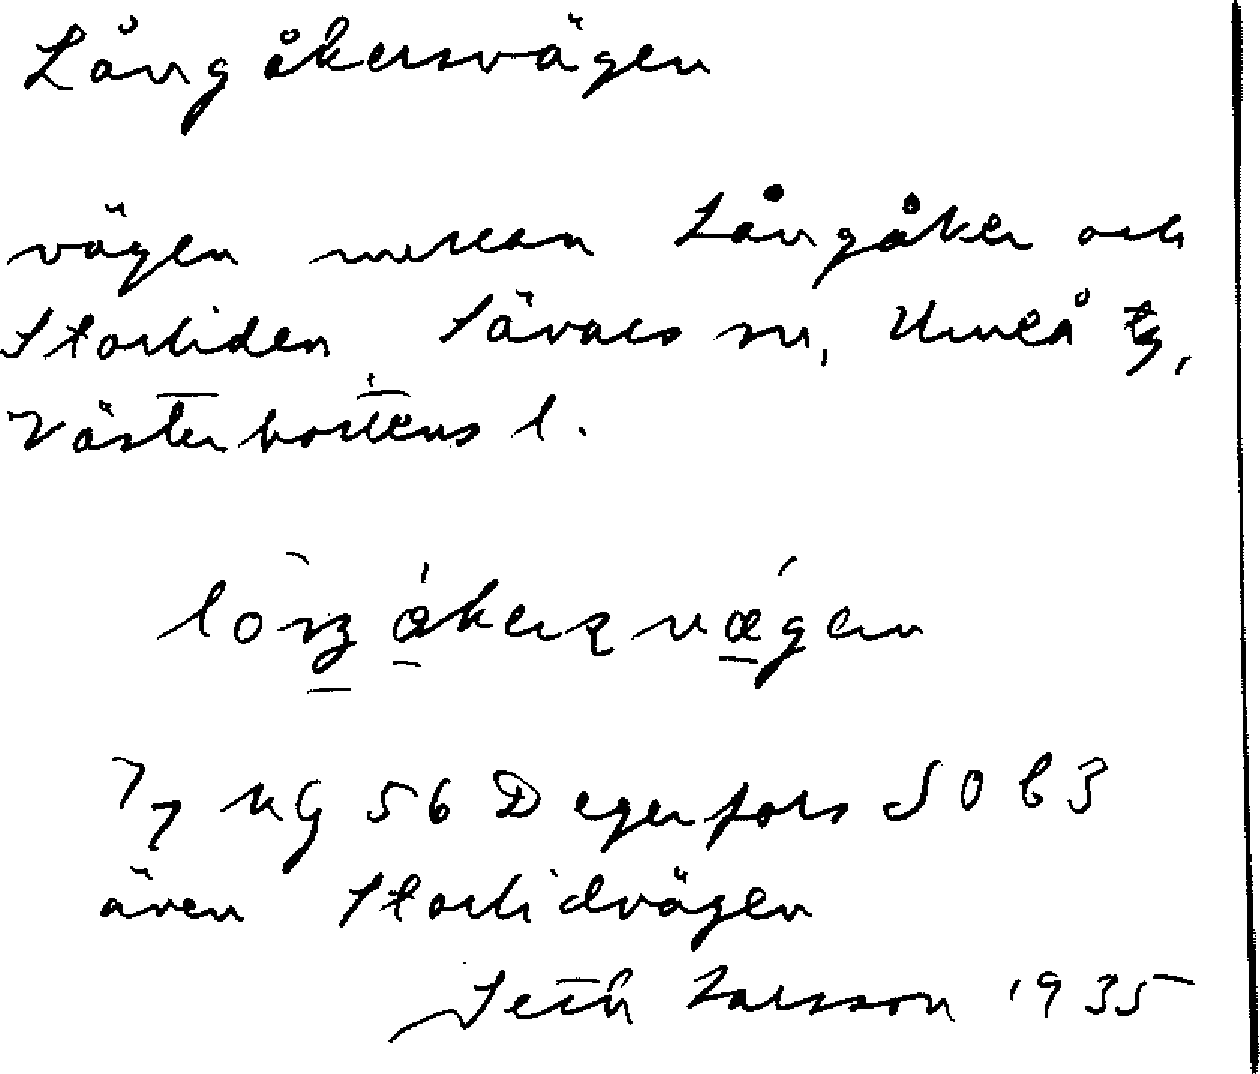 Långåkersvägen
vägen mellan Långåker och
Storliden, Sävars sn, Umeå tg,
Västerbottens l.
åkersvægen
56 Degerfors SO b3
även Storlidvägen
Seth Larsson 1935